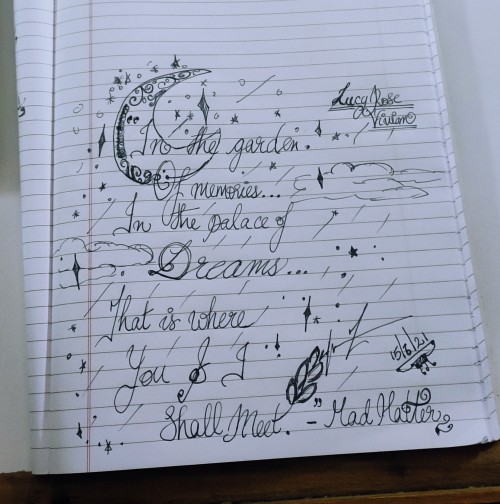 Lucy Rose
Vivian
In the garden.
Of memories...
In the palace of
Dreams...
That is where
You & I
15/6/21
Shall Meet." - Mad Hatter